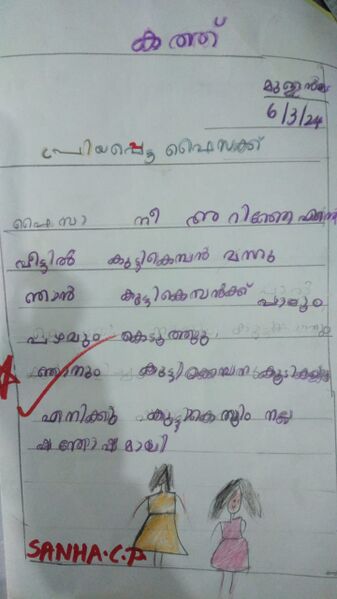 കത്ത്
മുള്ളൻമട
6/3/24
പ്രിയപ്പെട്ട ഫൈസക്ക്
ഫൈസാ നീ അറിഞ്ഞേ എന്റെ
വീട്ടിൽ കുട്ടികൊമ്പൻ വന്നു
ഞാൻ കുട്ടികെമ്പൻക്ക് പാലും
പഴവും കെടുത്തു
ഞാനും കുട്ടിക്കെമ്പനും
എനിക്കു നല്ല
ഷന്തോഷമായി
SANHA.C.P